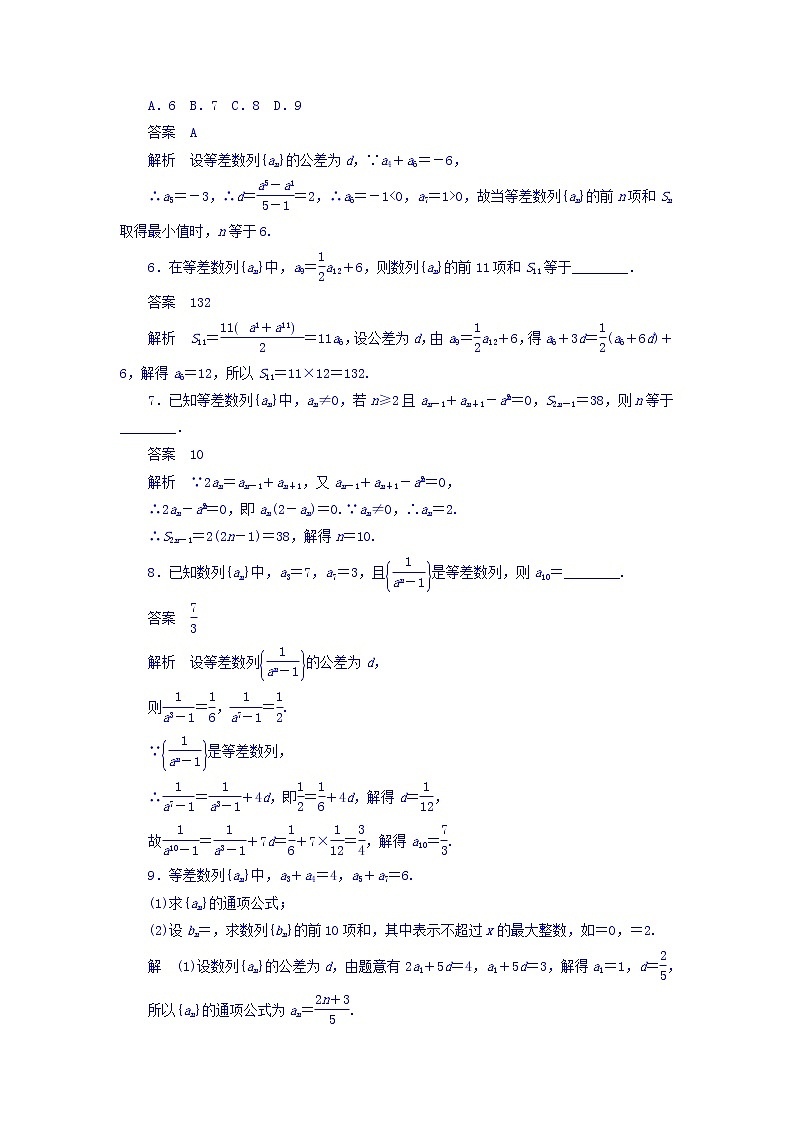 A．6　B．7　C．8　D．9
答案　A
解析　设等差数列{aₙ}的公差为 d，∵a₄＋a₆＝－6，
∴a₅＝－3，∴d＝(a5－a1)/(5－1)＝2，∴a₆＝－1<0，a₇＝1>0，故当等差数列{aₙ}的前 n 项和 Sₙ
取得最小值时，n 等于 6.
6．在等差数列{aₙ}中，a₉＝1/2a₁₂＋6，则数列{aₙ}的前 11 项和 S₁₁等于________．
答案　132
解析　S₁₁＝11(a1＋a11)/2＝11a₆，设公差为 d，由 a₉＝1/2a₁₂＋6，得 a₆＋3d＝1/2(a₆＋6d)＋
6，解得 a₆＝12，所以 S₁₁＝11×12＝132.
7．已知等差数列{aₙ}中，aₙ≠0，若 n≥2 且 aₙ₋₁＋aₙ₊₁－a²ₙ＝0，S₂ₙ₋₁＝38，则 n 等于
________．
答案　10
解析　∵2aₙ＝aₙ₋₁＋aₙ₊₁，又 aₙ₋₁＋aₙ₊₁－a²ₙ＝0，
∴2aₙ－a²ₙ＝0，即 aₙ(2－aₙ)＝0.∵aₙ≠0，∴aₙ＝2.
∴S₂ₙ₋₁＝2(2n－1)＝38，解得 n＝10.
8．已知数列{aₙ}中，a₃＝7，a₇＝3，且{1/(an－1)}是等差数列，则 a₁₀＝________.
答案　7/3
解析　设等差数列{1/(an－1)}的公差为 d，
则1/(a3－1)＝1/6，1/(a7－1)＝1/2.
∵{1/(an－1)}是等差数列，
∴1/(a7－1)＝1/(a3－1)＋4d，即1/2＝1/6＋4d，解得 d＝1/12，
故1/(a10－1)＝1/(a3－1)＋7d＝1/6＋7×1/12＝3/4，解得 a₁₀＝7/3.
9．等差数列{aₙ}中，a₃＋a₄＝4，a₅＋a₇＝6.
(1)求{aₙ}的通项公式；
(2)设 bₙ＝，求数列{bₙ}的前 10 项和，其中表示不超过 x 的最大整数，如＝0，＝2.
解　(1)设数列{aₙ}的公差为 d，由题意有 2a₁＋5d＝4，a₁＋5d＝3，解得 a₁＝1，d＝2/5，
所以{aₙ}的通项公式为 aₙ＝(2n＋3)/5.